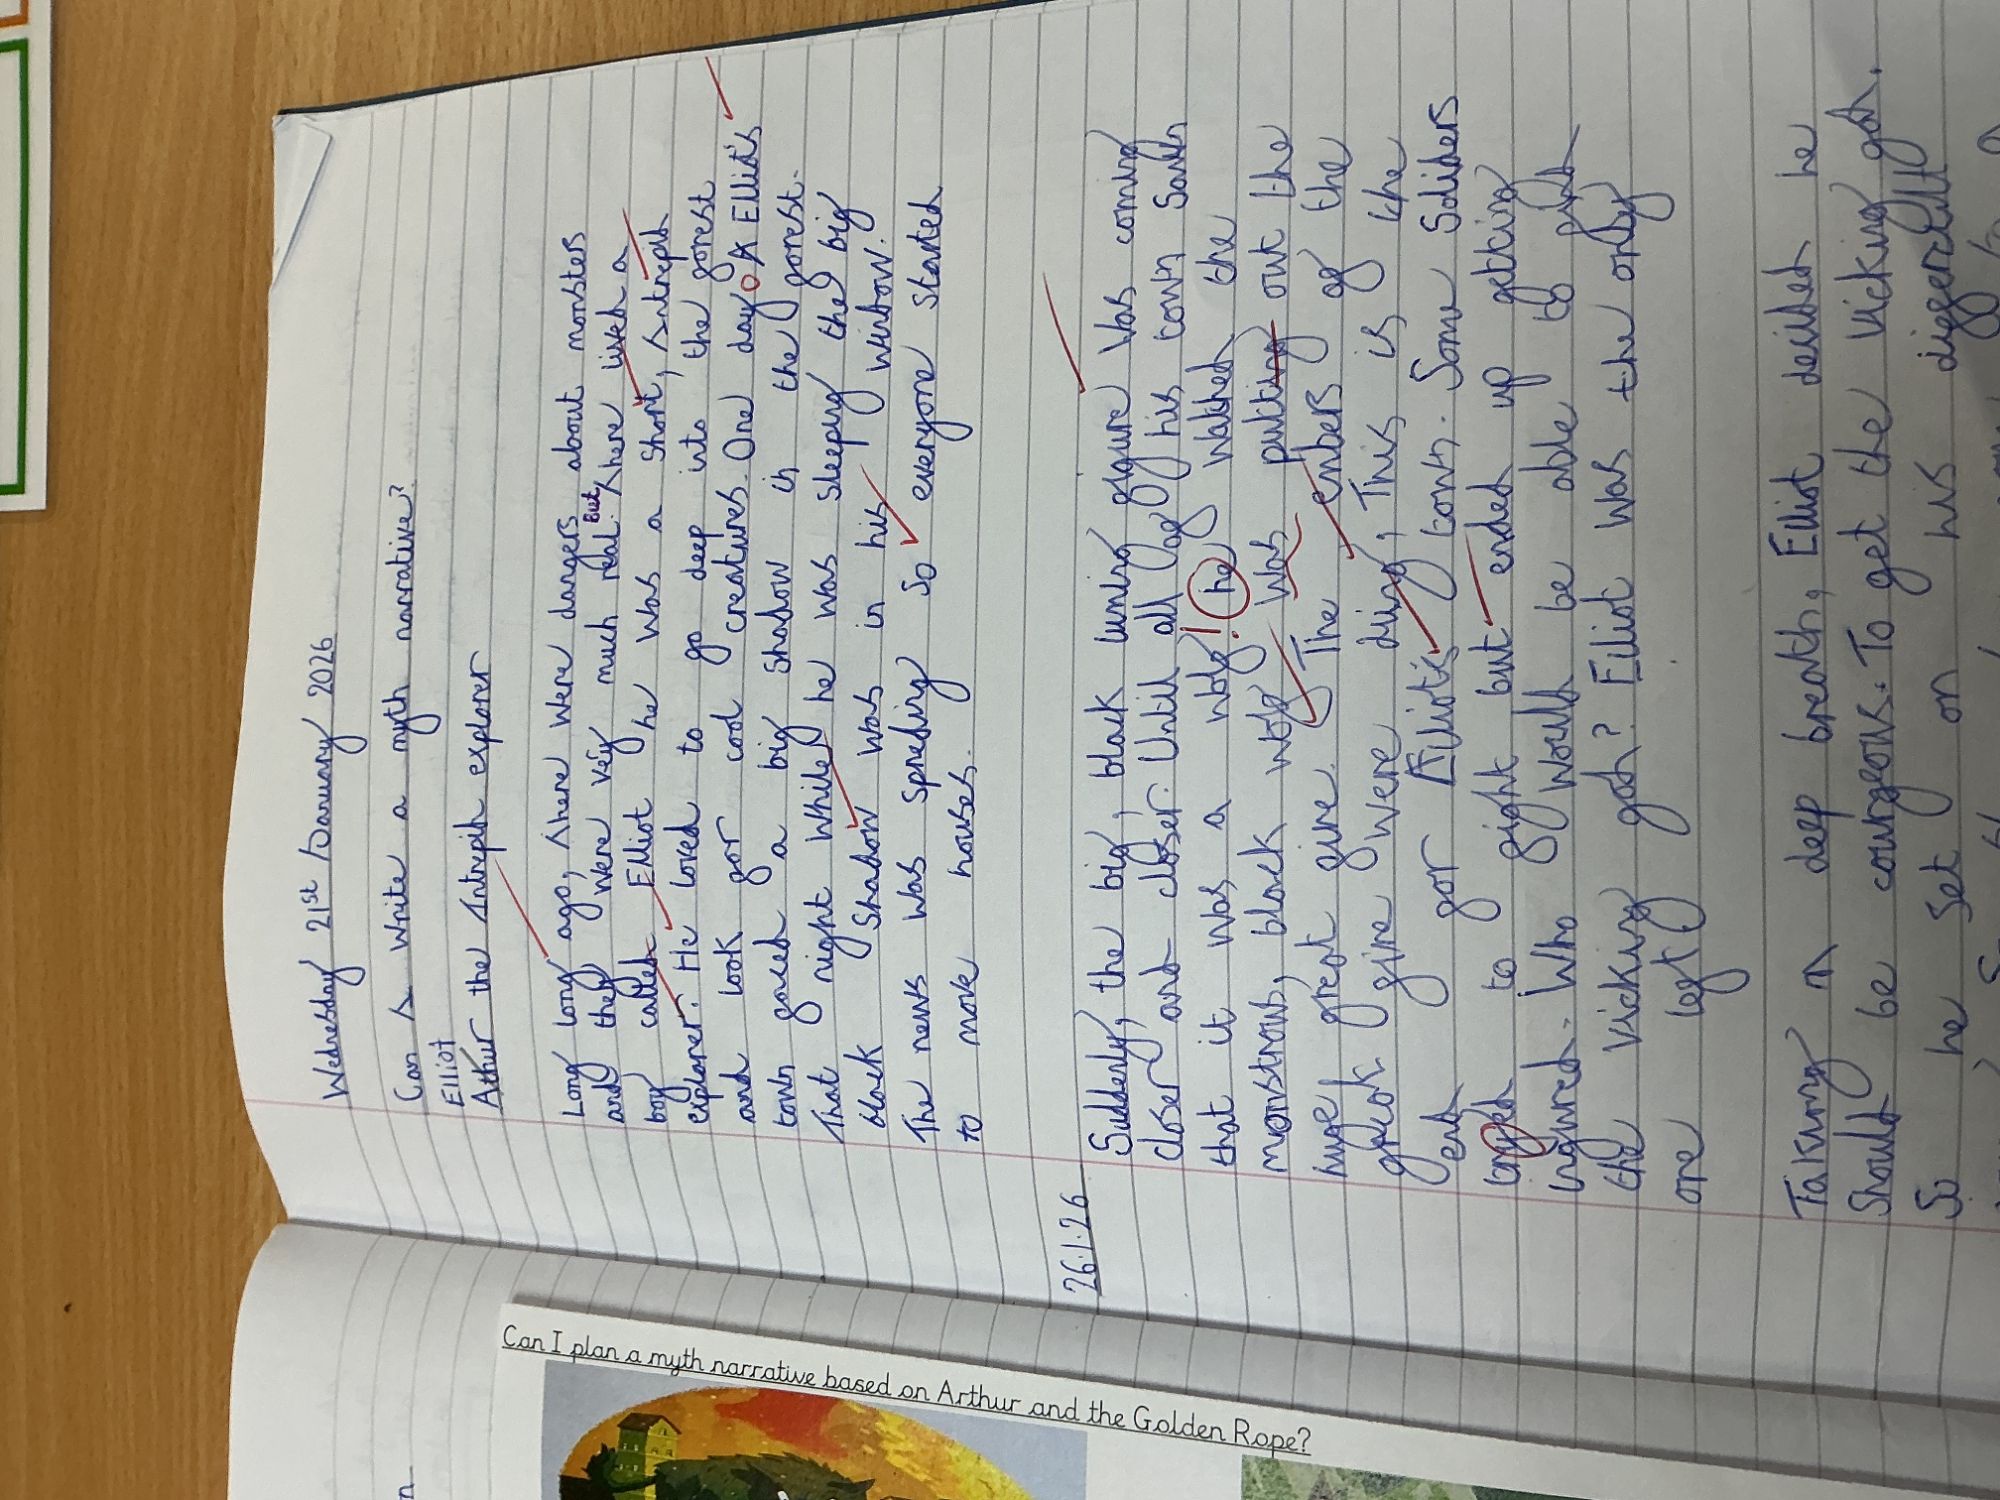 Wednesday 21st January 2026
Can I write a myth narrative?
Elliot
Arthur the Intrepid explorer
Long long ago, there were dangers about monsters
and they were very much real. But, there lived a
boy called Elliot he was a short, Intrepid
explorer. He loved to go deep into the forest
and look for cool creatures. One day A Elliot's
town faced a big shadow in the forest.
That night while he was sleeping the big
black shadow was in his window.
The news was spreding so everyone started
to move houses.
26.1.26
Suddenly, the big, black luming figure was coming
closer and closer. Until all of his town sawn
that it was a wolf! he watched the
monstrous, black wolf was putting out the
huge great give. The embers of the
greok fire were diing, This is the
end for Elliot's town. Some Soliders
to fight but ended up getting
ingured. Who would be able to find
the vicking god? Elliot was the only
one left
Taking a deep breath, Elliot deided he
should be courgeous. To get the vicking god.
So he set on his
Can I plan a myth narrative based on Arthur and the Golden Rope?